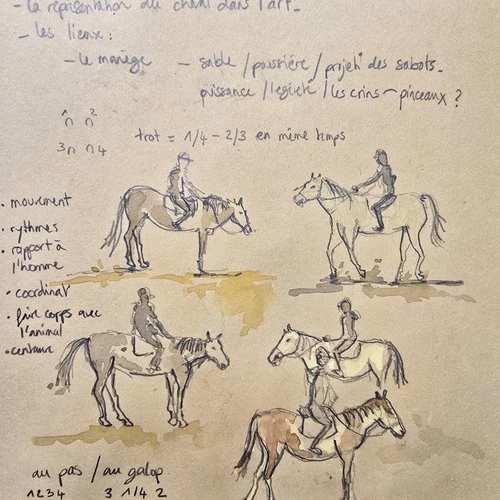 - la représentation du cheval dans l'art -
- les lieux :
- le manège - sable / poussière / projeté des sabots -
puissance / légèreté / les crins - pinceaux ?
trot = 1/4 - 2/3 en même temps
3 4
• mouvement
• rythmes
• rapport à
l'homme
• coordinat
• faire corps avec
l'animal
• centaure
au pas / au galop
1 2 3 4 3 1/4 2